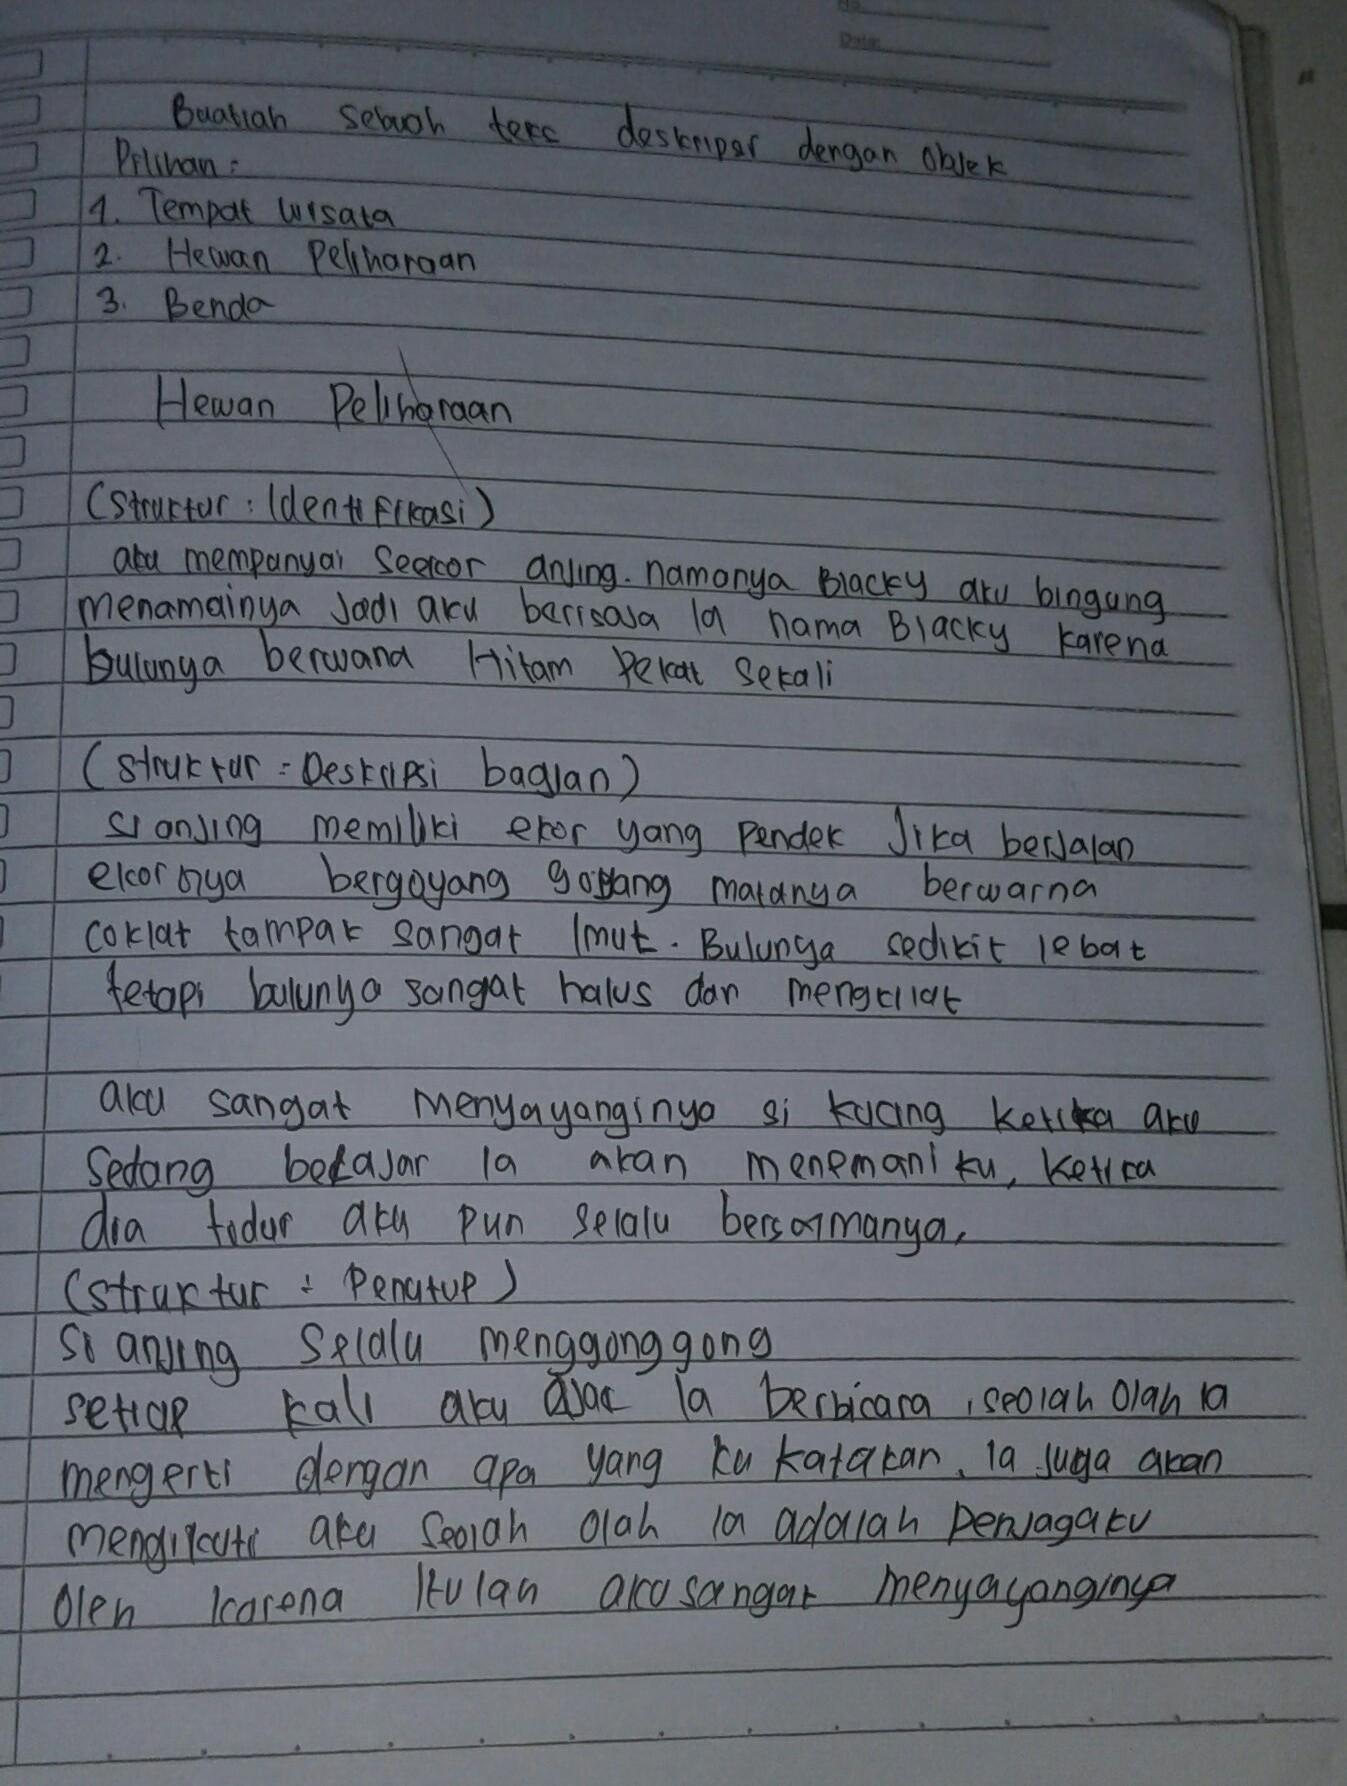 No
Date
Buatlah sebuah teks deskripsi dengan objek
Pilihan :
1. Tempat wisata
2. Hewan Peliharaan
3. Benda
Hewan Peliharaan
(Struktur : Identifikasi)
aku mempunyai seekor anjing. namanya Blacky aku bingung
menamainya Jadi aku berisaja ia nama Blacky karena
bulunya berwana Hitam Pekat Sekali
(struktur : Deskripsi bagian)
si anjing memiliki ekor yang pendek Jika berjalan
ekornya bergoyang goyang matanya berwarna
coklat tampak sangat Imut. Bulunya sedikit lebat
tetapi bulunya sangat halus dan mengkilat
aku sangat menyayanginya si kucing ketika aku
sedang belajar ia akan menemani ku, ketika
dia tidur aku pun selalu bersamanya,
(struktur : Penutup)
si anjing selalu menggonggong
setiap kali aku ajak ia berbicara, seolah olah ia
mengerti dengan apa yang ku katakan, ia juga akan
mengikuti aku seolah olah ia adalah penjagaku
Oleh karena Itulah aku sangat menyayanginya